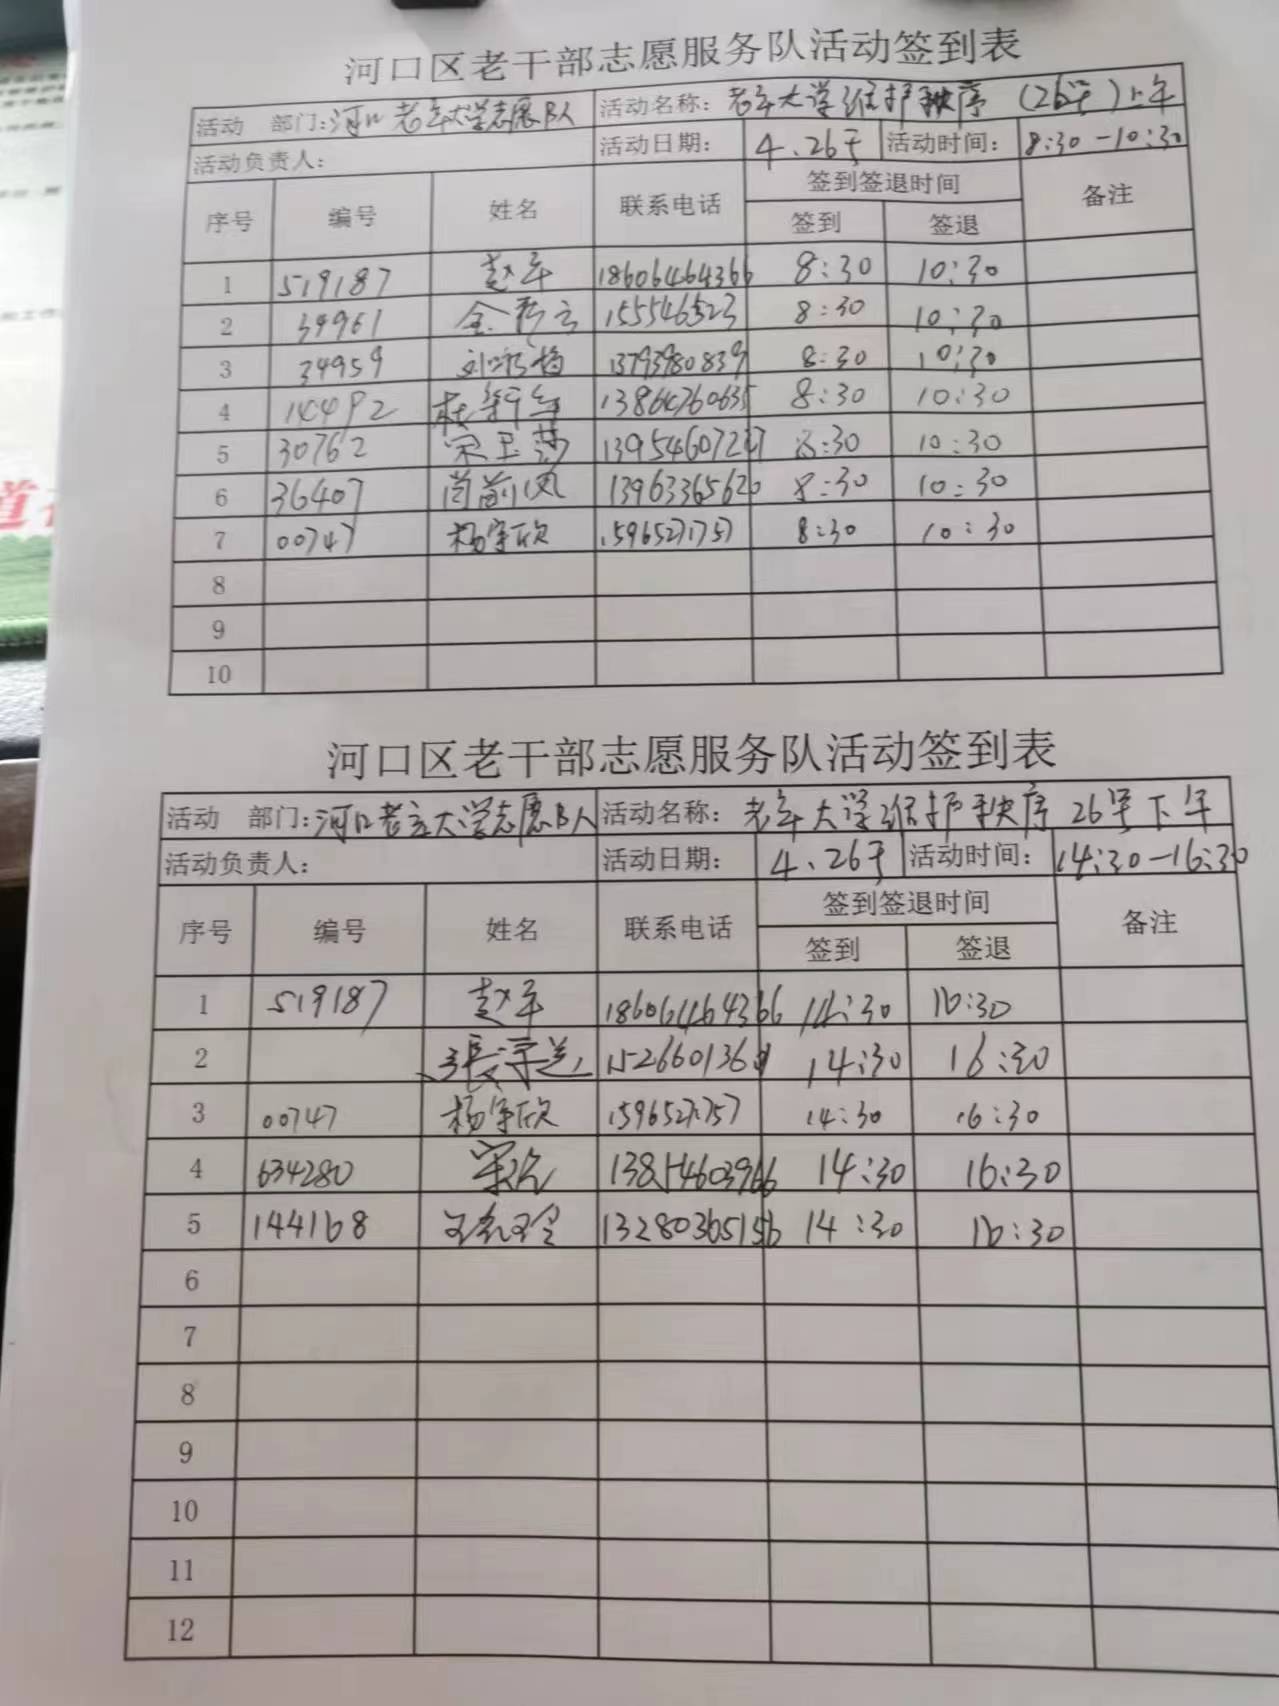 河口区老干部志愿服务队活动签到表
活动 部门:河口老年大学志愿队 活动名称: 老年大学维护秩序 (26号)上午
活动负责人: 活动日期: 4.26号 活动时间: 8:30-10:30
序号 编号 姓名 联系电话 签到签退时间 备注
签到 签退
1 519187 赵军 18606464366 8:30 10:30
2 34961 金秀云 155546523 8:30 10:30
3 34959 刘咏梅 13793980839 8:30 10:30
4 14492 8:30 10:30
5 30762 宋玉莎 13954607237 8:30 10:30
6 36407 尚前凤 13963365620 8:30 10:30
7 00747 杨宇欣 15965271757 8:30 10:30
8
9
10
河口区老干部志愿服务队活动签到表
活动 部门:河口老年大学志愿队人 活动名称: 老年大学维护秩序 26号下午
活动负责人: 活动日期: 4.26号 活动时间: 14:30-16:30
序号 编号 姓名 联系电话 签到签退时间 备注
签到 签退
1 519187 赵军 18606464366 14:30 16:30
2 14:30 16:30
3 00747 杨宇欣 15965271757 14:30 16:30
4 634280 13814603966 14:30 16:30
5 144168 13280365156 14:30 16:30
6
7
8
9
10
11
12